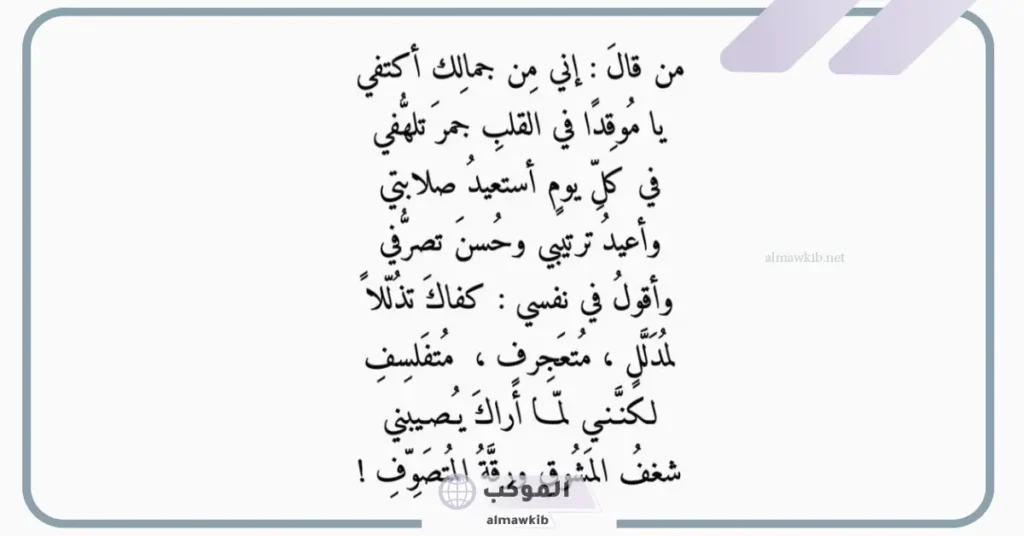 من قالَ : إني مِن جمالِك أكتفي
يا مُوقِدًا في القلبِ جمرَ تلهُّفي
في كلِّ يومٍ أستعيدُ صلابتي
وأعيدُ ترتيبي وحُسنَ تصرُّفي
almawkib.net
وأقولُ في نفسي : كفاكَ تذُلّلاً
لمُدَلَّلٍ ، مُتعَجِرفٍ ، مُتفَلسِفِ
لكنَّني لمّا أراكَ يُصيبني
شغفُ المَشُوقِ ورقَّةُ المُتصَوِّفِ !
الموكب
almawkib